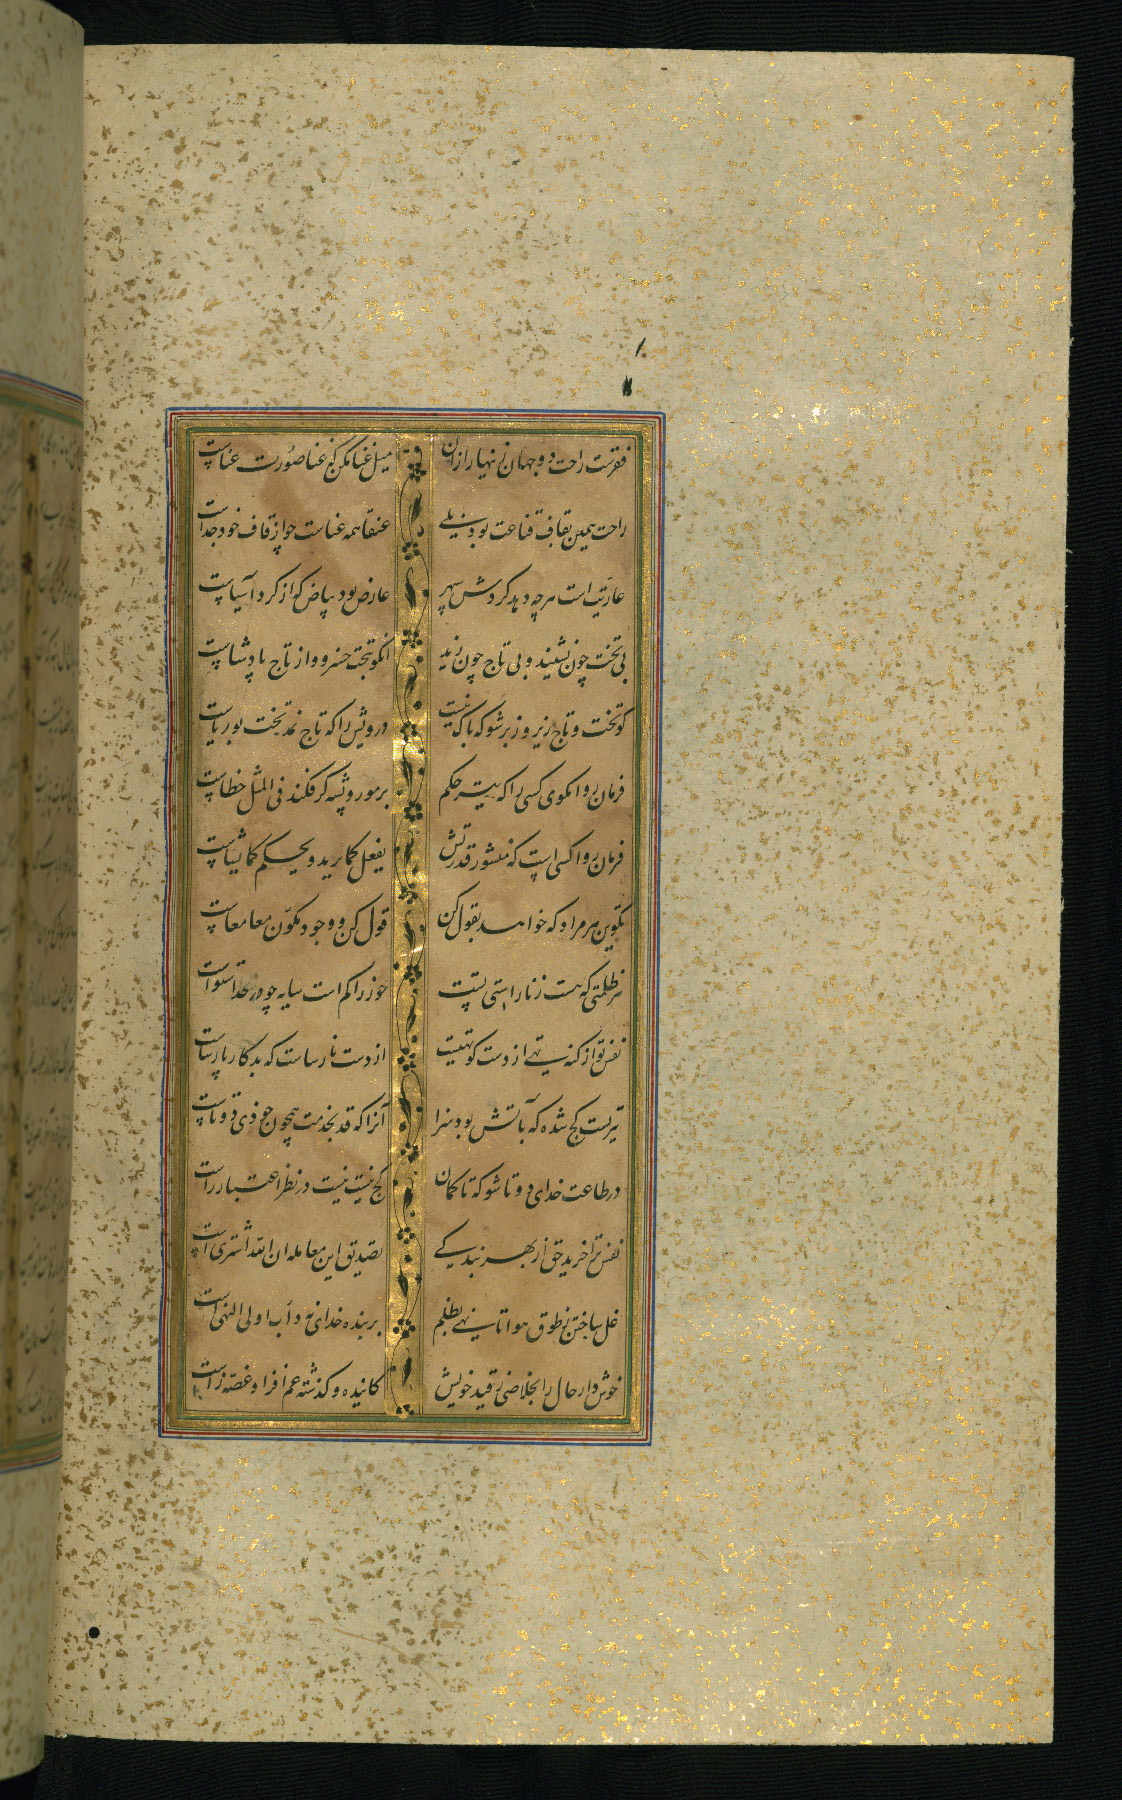 فقرست راحت دو جهان زینهار ازان میل غنا مکن که غنا صورت عناست
راحت همین بقاف قناعت بود نزیل عنقا همه عناست چو از قاف خود جداست
عاریت است هرچه دهد کردش سپهر عارض بود بیاض که از کرد آسیاست
بی تخت چون نشیند و بی تاج چون زید انکو بتخت خسرو و از تاج پادشاست
کو تخت و تاج زیر و زبر شو که باک نیست درویش را که تاج نمد تخت بوریاست
فرمان روا مکوی کسی را که تیر حکم بر مور و پشه کر فکند فی المثل خطاست
فرمان روا کسی است که منشور قدرتش یفعل کما یرید و یحکم کما یشاست
تکوین هر مراد که خواهد بقول کن قول کن و وجود مکون معا معاست
هر ظلمتی که هست ز ناراستی تست خور را کم است سایه چو در حد استواست
نفس تو از کنه تهی از دست کوتهیست از دست نارساست که بدکار پارساست
تیریست کج شده که بآتش بود سزا آنرا که قد بخدمت همچون خودی دوتاست
در طاعت خدای دوتا شو که تا کمان کج نیست نیست در نظر اعتبار راست
نفس ترا خرید حق از بهر بندکی تصدیق این معامله ان الله اشتری است
غل ساختن ز طوق هوا تا نهی بظلم بر بنده خدا نه دآب اولی النهی است
خوش دار حال را بخلاصی ز قید خویش کاینده و کذشته غم افزا و غصه زاست